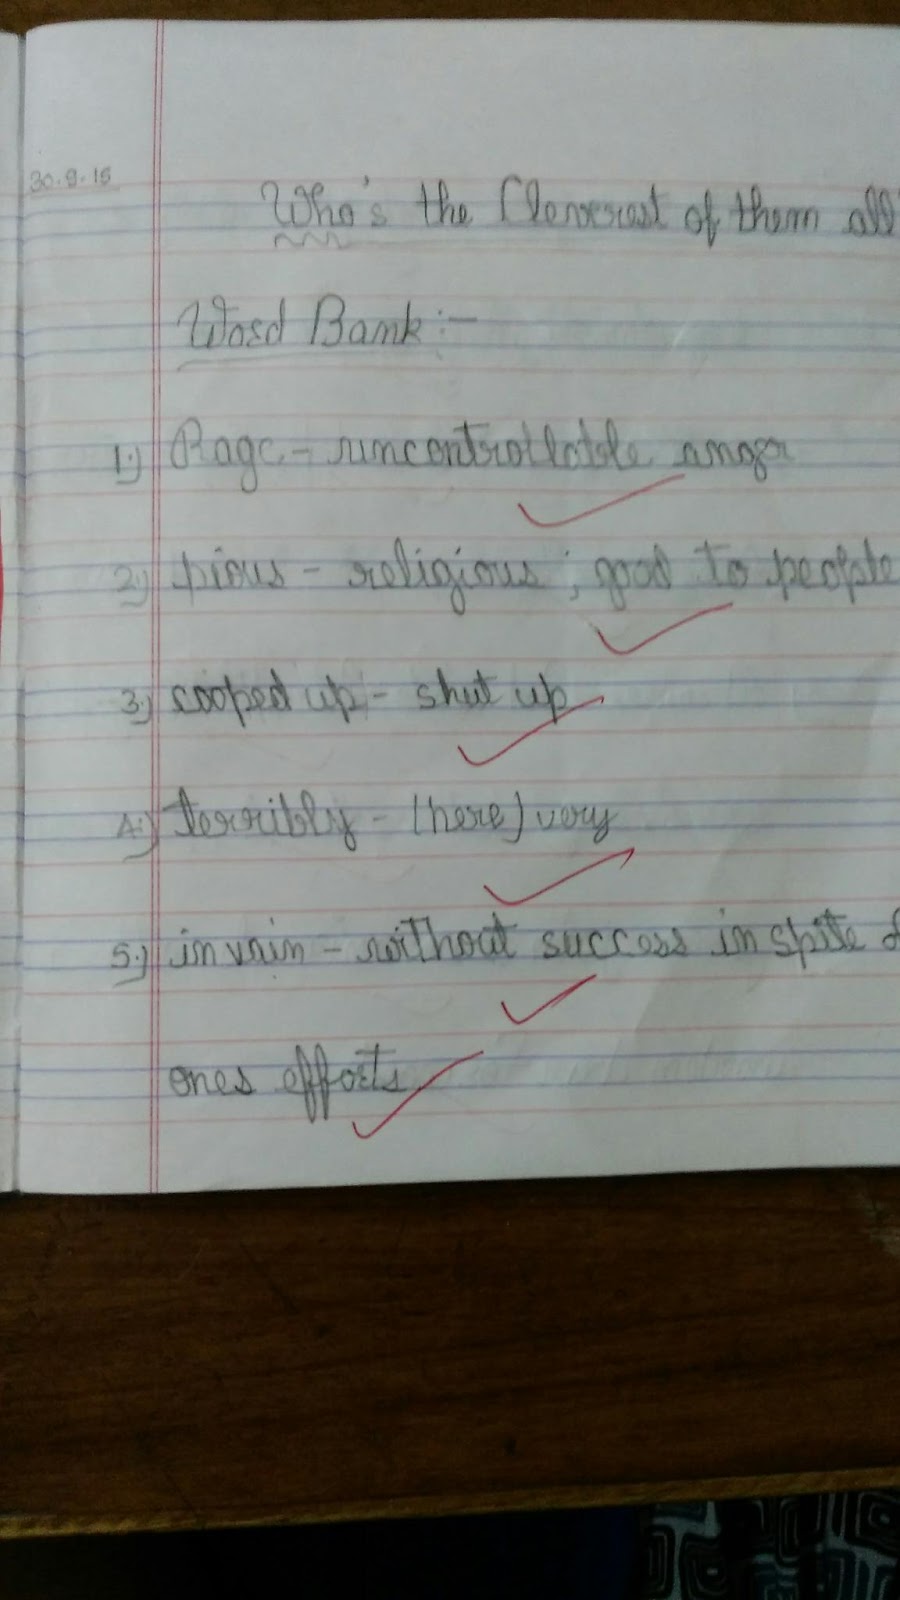 30.9.15
Who's the Cleverest of them all
Word Bank :-
1.) Rage - uncontrollable anger
2.) pious - religious ; good to people
3.) cooped up - shut up
4.) terribly - (here) very
5.) in vain - without success in spite of
ones efforts